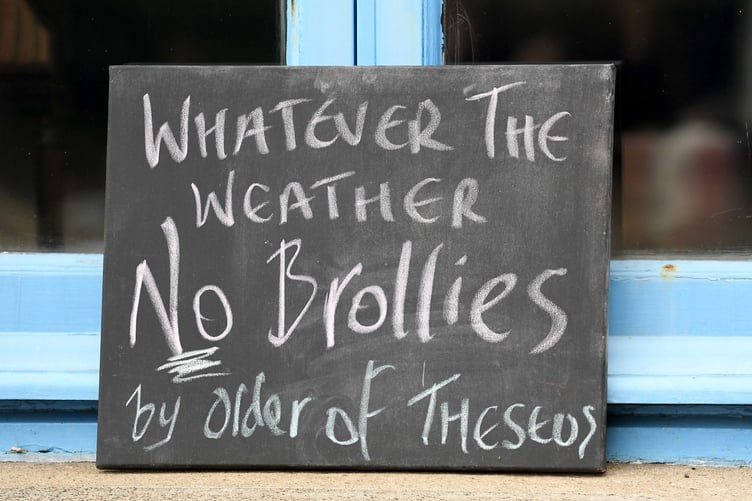 WHATEVER THE
WEATHER
No Brollies
by order of THESEUS